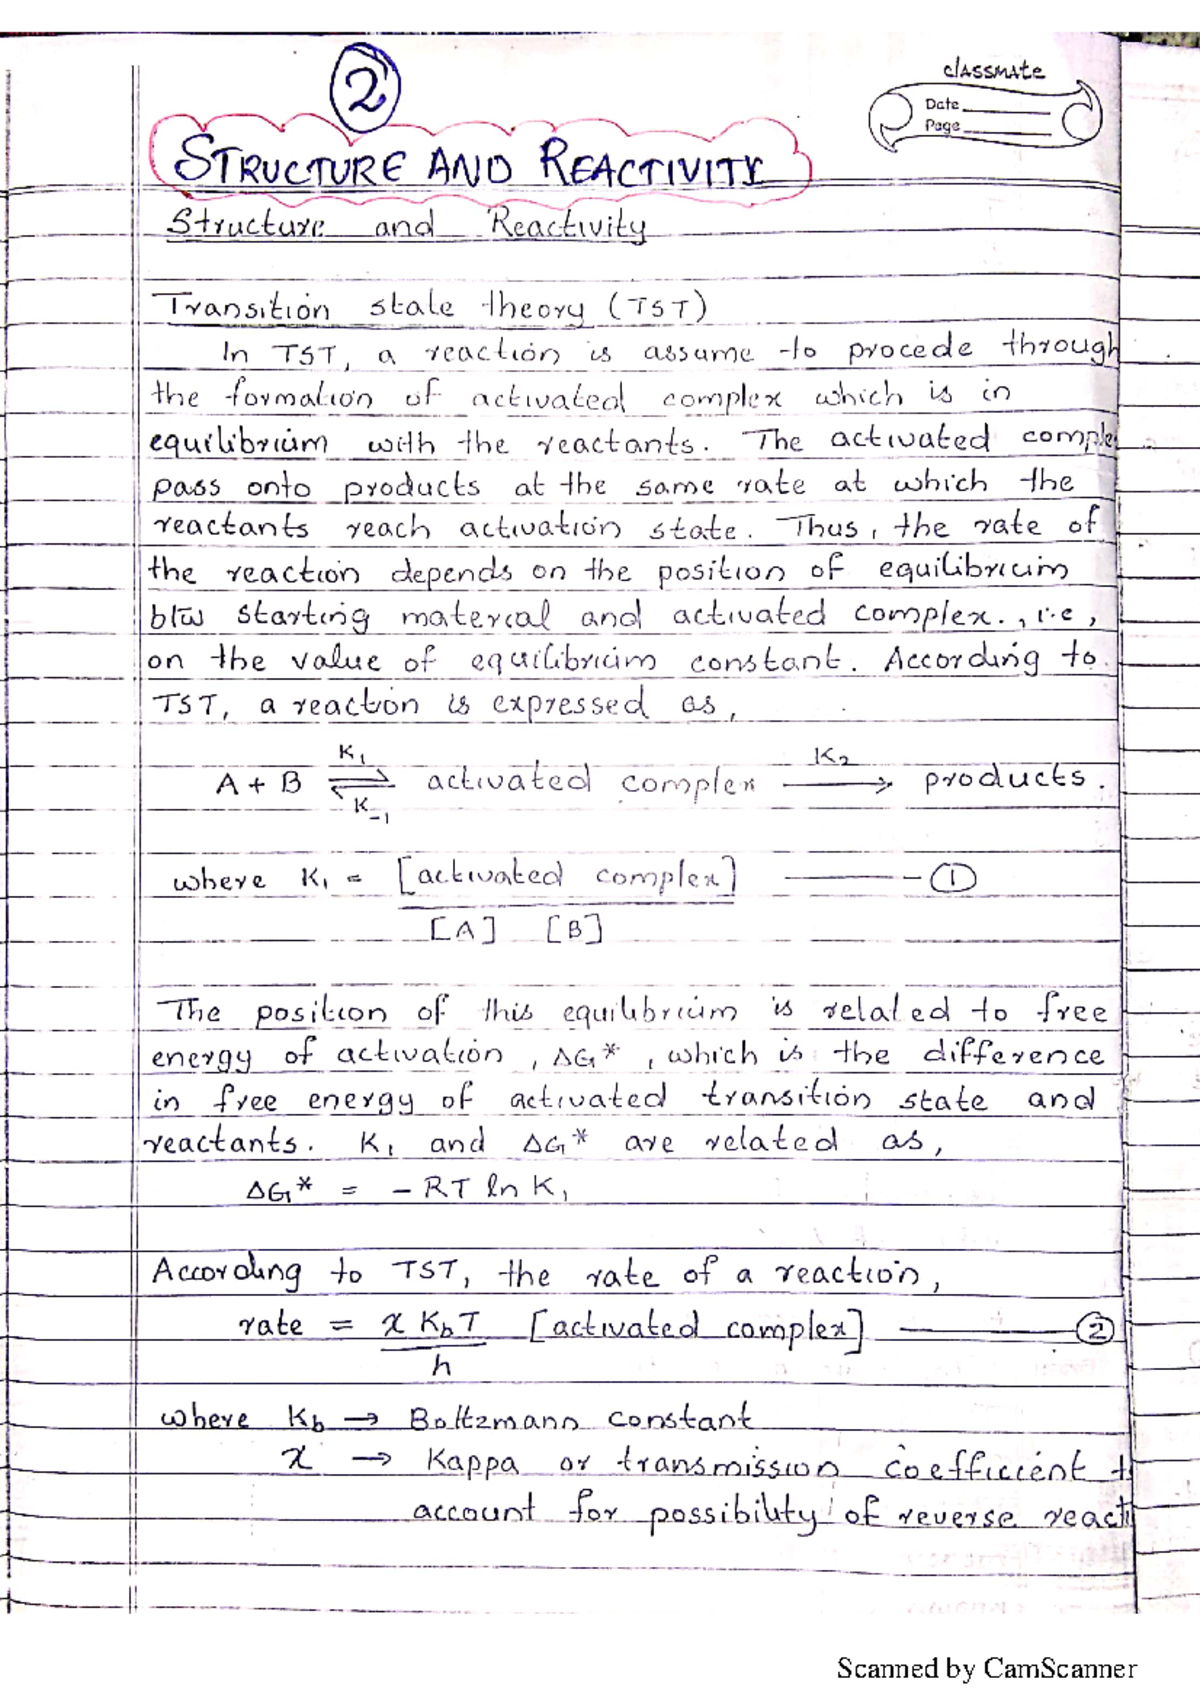 2
classmate
Date
Page
STRUCTURE AND REACTIVITY
Structure and Reactivity
Transition state theory (TST)
In TST, a reaction is assume to procede through
the formation of activated complex which is in
equilibrium with the reactants. The activated comple
pass onto products at the same rate at which the
reactants reach activation state. Thus, the rate of
the reaction depends on the position of equilibrium
b/w starting material and activated complex., i.e,
on the value of equilibrium constant. According to
TST, a reaction is expressed as,
A + B ⇌ activated complex → products.
K₁
K₋₁
K₂
where K₁ = [activated complex] ——— ①
[A] [B]
The position of this equilibrium is related to free
energy of activation, ΔG*, which is the difference
in free energy of activated transition state and
reactants. K₁ and ΔG* are related as,
ΔG* = - RT ln K₁
According to TST, the rate of a reaction,
rate = x KbT [activated complex] ——— ②
h
where Kb → Boltzmann constant
x → Kappa or transmission coefficient t
account for possibility of reverse reacti
Scanned by CamScanner